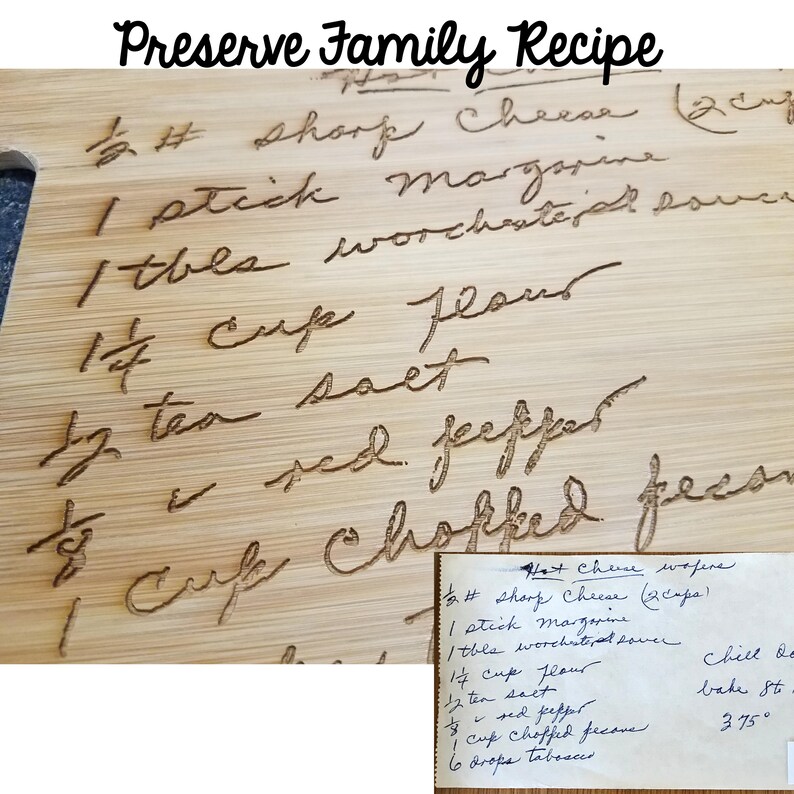 Preserve Family Recipe
Hot Cheese
1/2 # sharp cheese (2 cups
1 stick margarine
1 tbls worchestersh sauce
1 1/4 cup flour
1/2 tea salt
1/8 " red pepper
1 cup chopped pecans
Hot Cheese wafers
1/2 # sharp cheese (2 cups)
1 stick margarine
1 tbls worchestersh sauce
1 1/4 cup flour
1/2 tea salt
1/8 " red pepper
1 cup chopped pecans
6 drops tabasco
chill
bake 8 to
375°